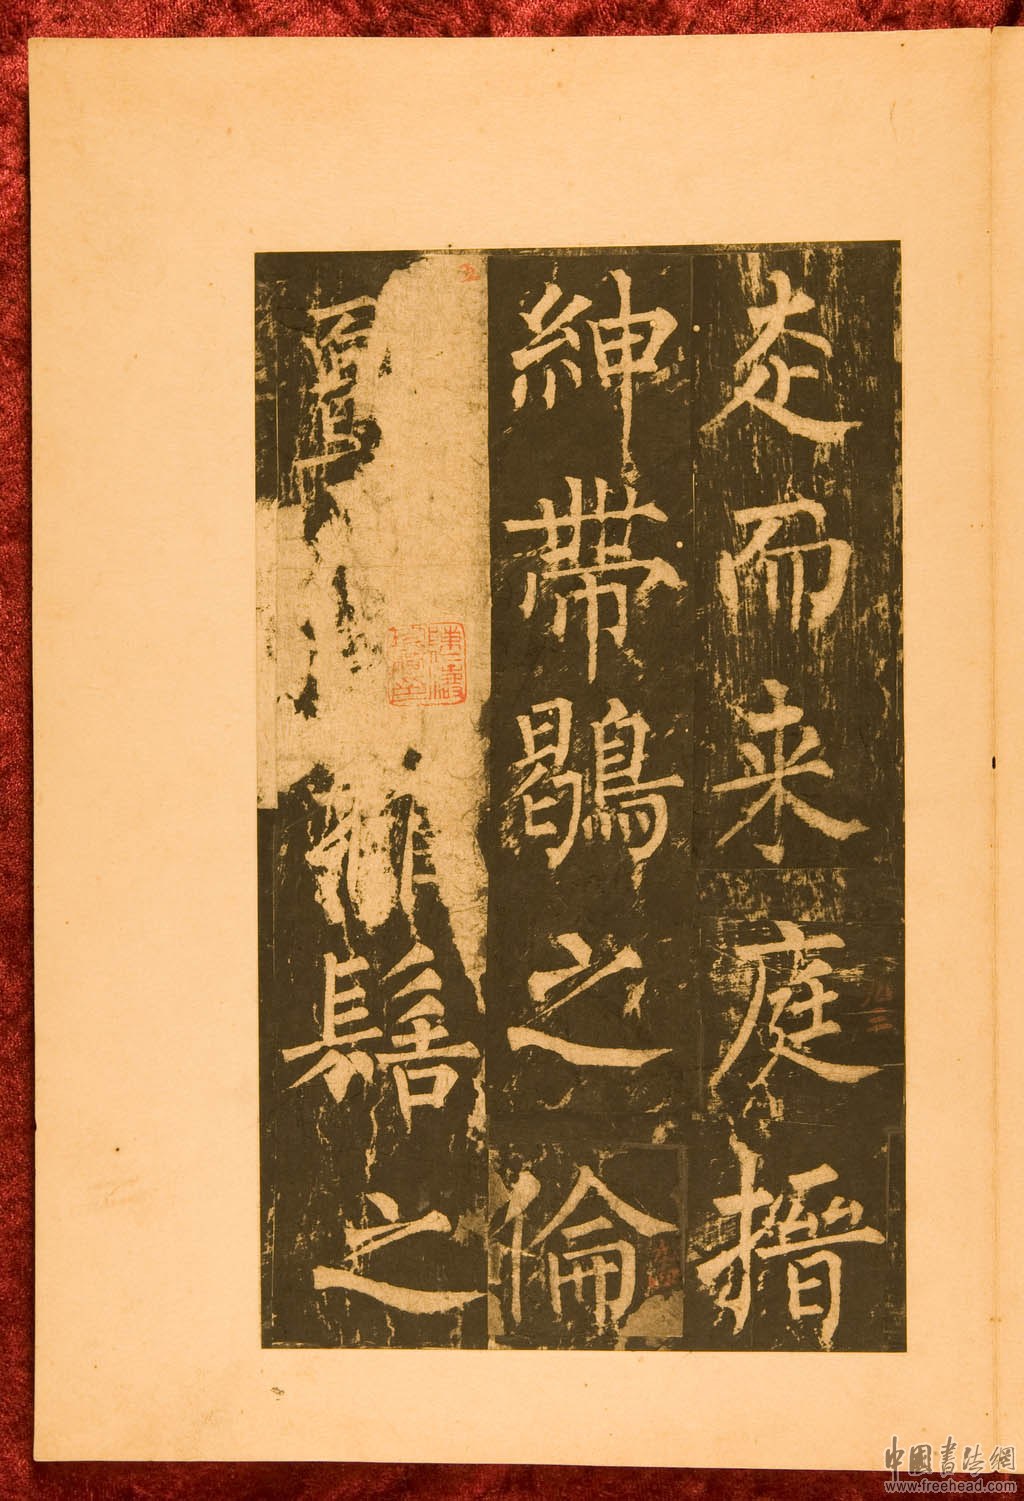 走而来庭搢
紳帶鶡之倫
椎髻之
中國書法網
www.freehead.com